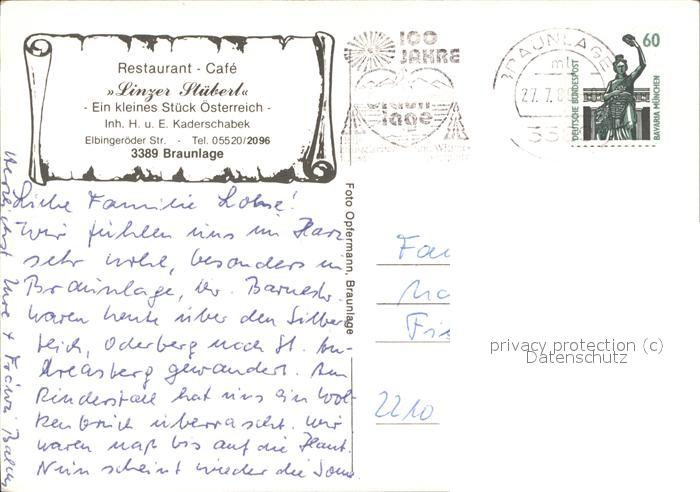 Restaurant - Café
»Linzer Stüberl«
- Ein kleines Stück Österreich -
Inh. H. u. E. Kaderschabek
Elbingeröder Str. - Tel. 05520/2096
3389 Braunlage
100
JAHRE
Braun
lage
BRAUNLAGE
mb
27.7.8
33
60
DEUTSCHE BUNDESPOST
BAVARIA MÜNCHEN
Liebe Familie Lohse!
Wir fühlen uns im Harz
sehr wohl, besonders in
Braunlage,
waren heute über den Silber
teich, Oderberg nach St. An-
dreasberg gewandert. Am
Rinderstall hat uns ein Wol-
kenbruch überrascht. Wir
waren naß bis auf die Haut.
Nun scheint wieder die Sonne.
Herzlichst Ihre
Foto Opfermann, Braunlage
Fa
2210
privacy protection (c)
Datenschutz